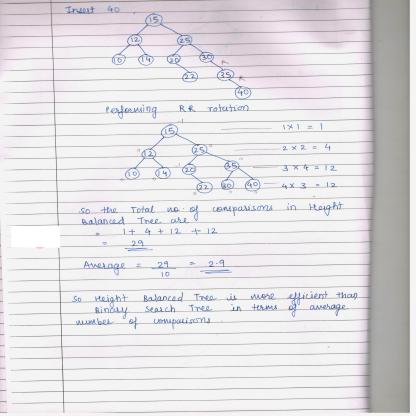 Insert 40
15
12 25
10 14 20 30
22 35
40
Performing RR rotation
15 1x1 = 1
12 25 2 x 2 = 4
10 14 20 35 3 x 4 = 12
22 30 40 4 x 3 = 12
So the Total no. of comparisons in Height
Balanced Tree are
= 1 + 4 + 12 + 12
= 29
Average = 29 / 10 = 2.9
So Height Balanced Tree is more efficient than
Binary Search Tree in terms of average
number of comparisons.